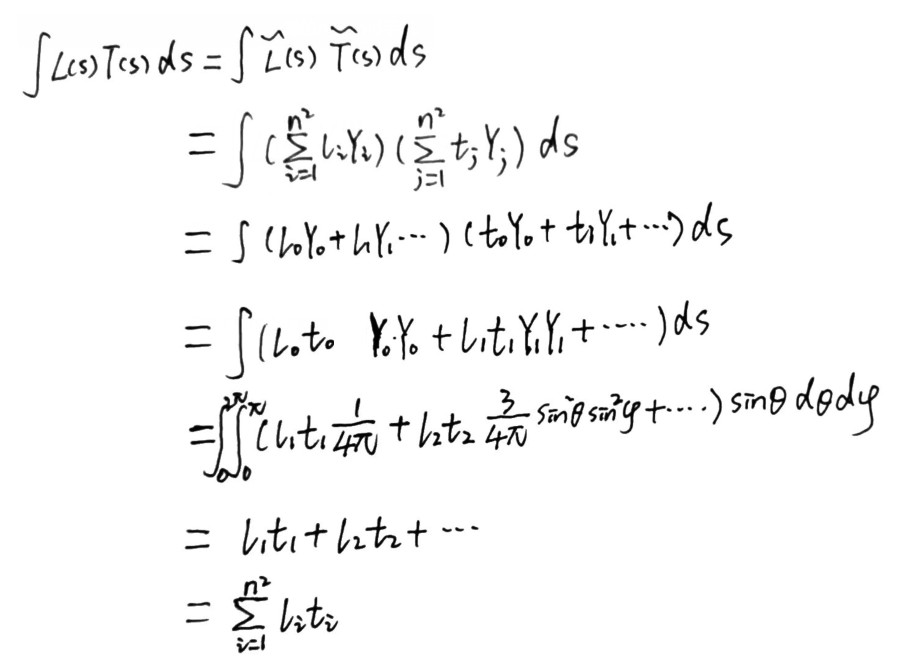 ∫L(s)T(s)ds = ∫L̃(s) T̃(s)ds
= ∫(∑_{i=1}^{n²} l_iY_i)(∑_{j=1}^{n²} t_jY_j) ds
= ∫(l₀Y₀+l₁Y₁⋯)(t₀Y₀+t₁Y₁+⋯)ds
= ∫(l₀t₀ Y₀·Y₀ + l₁t₁Y₁Y₁+⋯⋯)ds
= ∫₀^{2π}∫₀^{π}(l₁t₁ 1/4π + l₂t₂ 3/4π sin²θsin²φ+⋯⋯)sinθ dθdφ
= l₁t₁+l₂t₂+⋯
= ∑_{i=1}^{n²} l_it_i